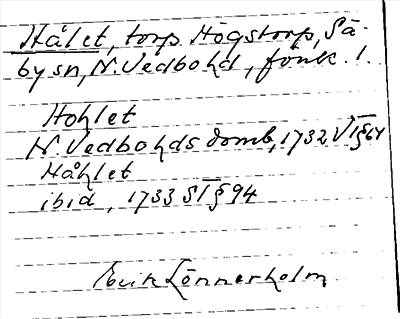 Hålet, torp Högstorp, Sä-
by sn, N. Vedbohd, fonk. 1.
Hohlet
N. Vedbohds domb, 1732 VI § 64
Håhlet
ibid, 1733 SI § 94
Erik Lönnerholm